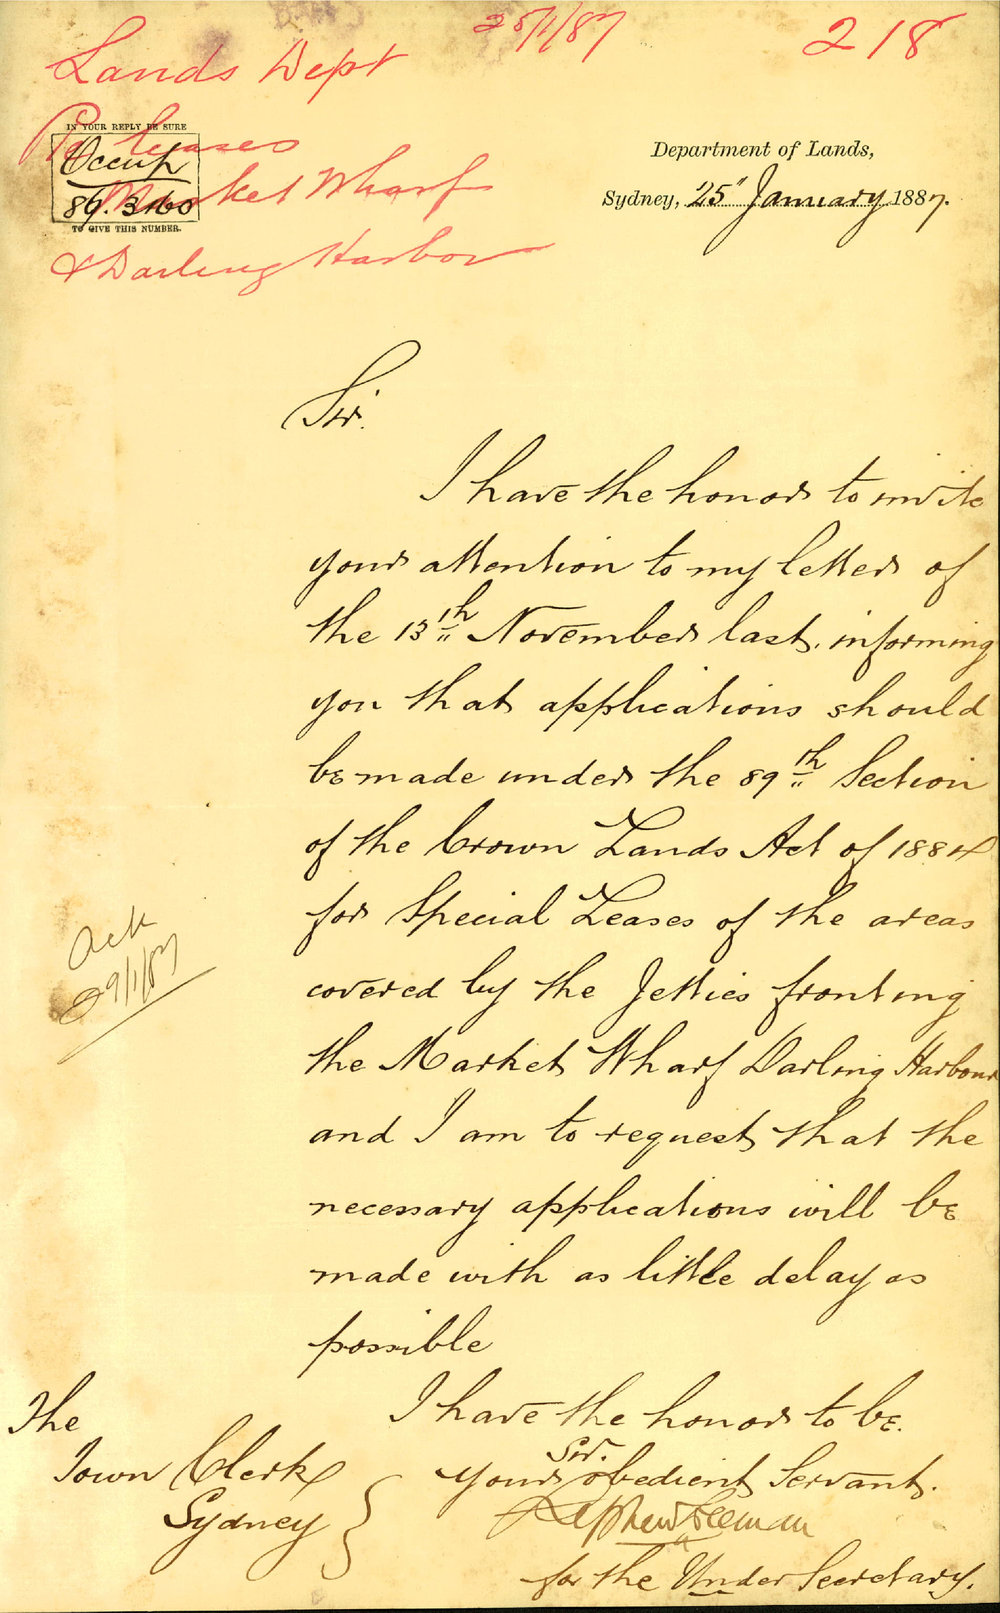 25/1/87
218
Lands Dept
Re leases
Market Wharf
& Darling Harbor
IN YOUR REPLY BE SURE
Occup
89.3160
TO GIVE THIS NUMBER.
Department of Lands,
Sydney, 25" January 1887.
Sir.
I have the honor to invite
your attention to my letter of
the 13th November last, informing
you that applications should
be made under the 89th Section
of the Crown Lands Act of 1884
for Special Leases of the areas
covered by the Jetties fronting
the Market Wharf Darling Harbour
and I am to request that the
necessary applications will be
made with as little delay as
possible
Ack
29/1/87
I have the honor to be.
Sir.
Your obedient Servant.
Stephen Freeman
for the Under Secretary.
The
Town Clerk
Sydney